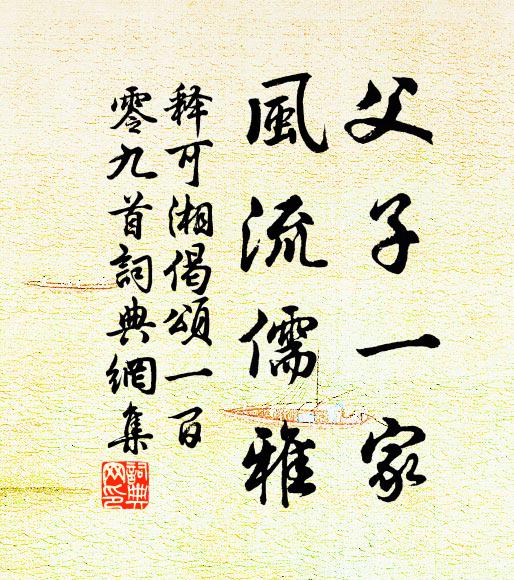 父子一家
風流儒雅
释可湘偈頌一百
零九首詞典網集
詞典网印